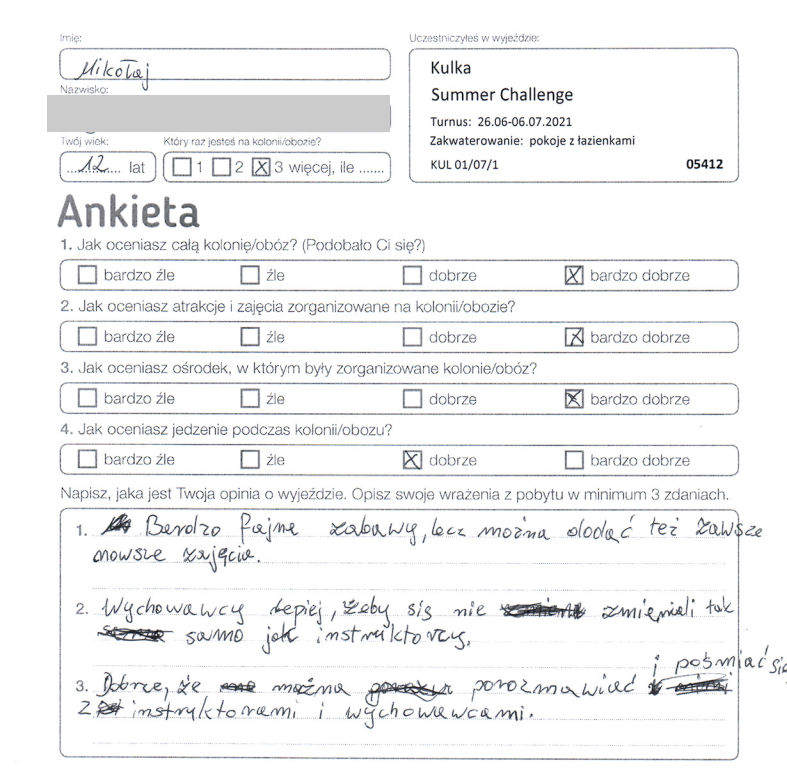 Imię:
Mikołaj
Nazwisko:
Twój wiek:
12 lat
Który raz jesteś na kolonii/obozie?
1 2 3 więcej, ile .......
Uczestniczyłeś w wyjeździe:
Kulka
Summer Challenge
Turnus: 26.06-06.07.2021
Zakwaterowanie: pokoje z łazienkami
KUL 01/07/1 05412
Ankieta
1. Jak oceniasz całą kolonię/obóz? (Podobało Ci się?)
bardzo źle źle dobrze bardzo dobrze
2. Jak oceniasz atrakcje i zajęcia zorganizowane na kolonii/obozie?
bardzo źle źle dobrze bardzo dobrze
3. Jak oceniasz ośrodek, w którym były zorganizowane kolonie/obóz?
bardzo źle źle dobrze bardzo dobrze
4. Jak oceniasz jedzenie podczas kolonii/obozu?
bardzo źle źle dobrze bardzo dobrze
Napisz, jaka jest Twoja opinia o wyjeździe. Opisz swoje wrażenia z pobytu w minimum 3 zdaniach.
1. Bardzo fajne zabawy, lecz można dodać też zawsze
nowsze zajęcia.
2. Wychowawcy lepiej, żeby się nie zmieniali tak
samo jak instruktorzy.
3. Dobrze, że można porozmawiać i pośmiać się
z instruktorami i wychowawcami.